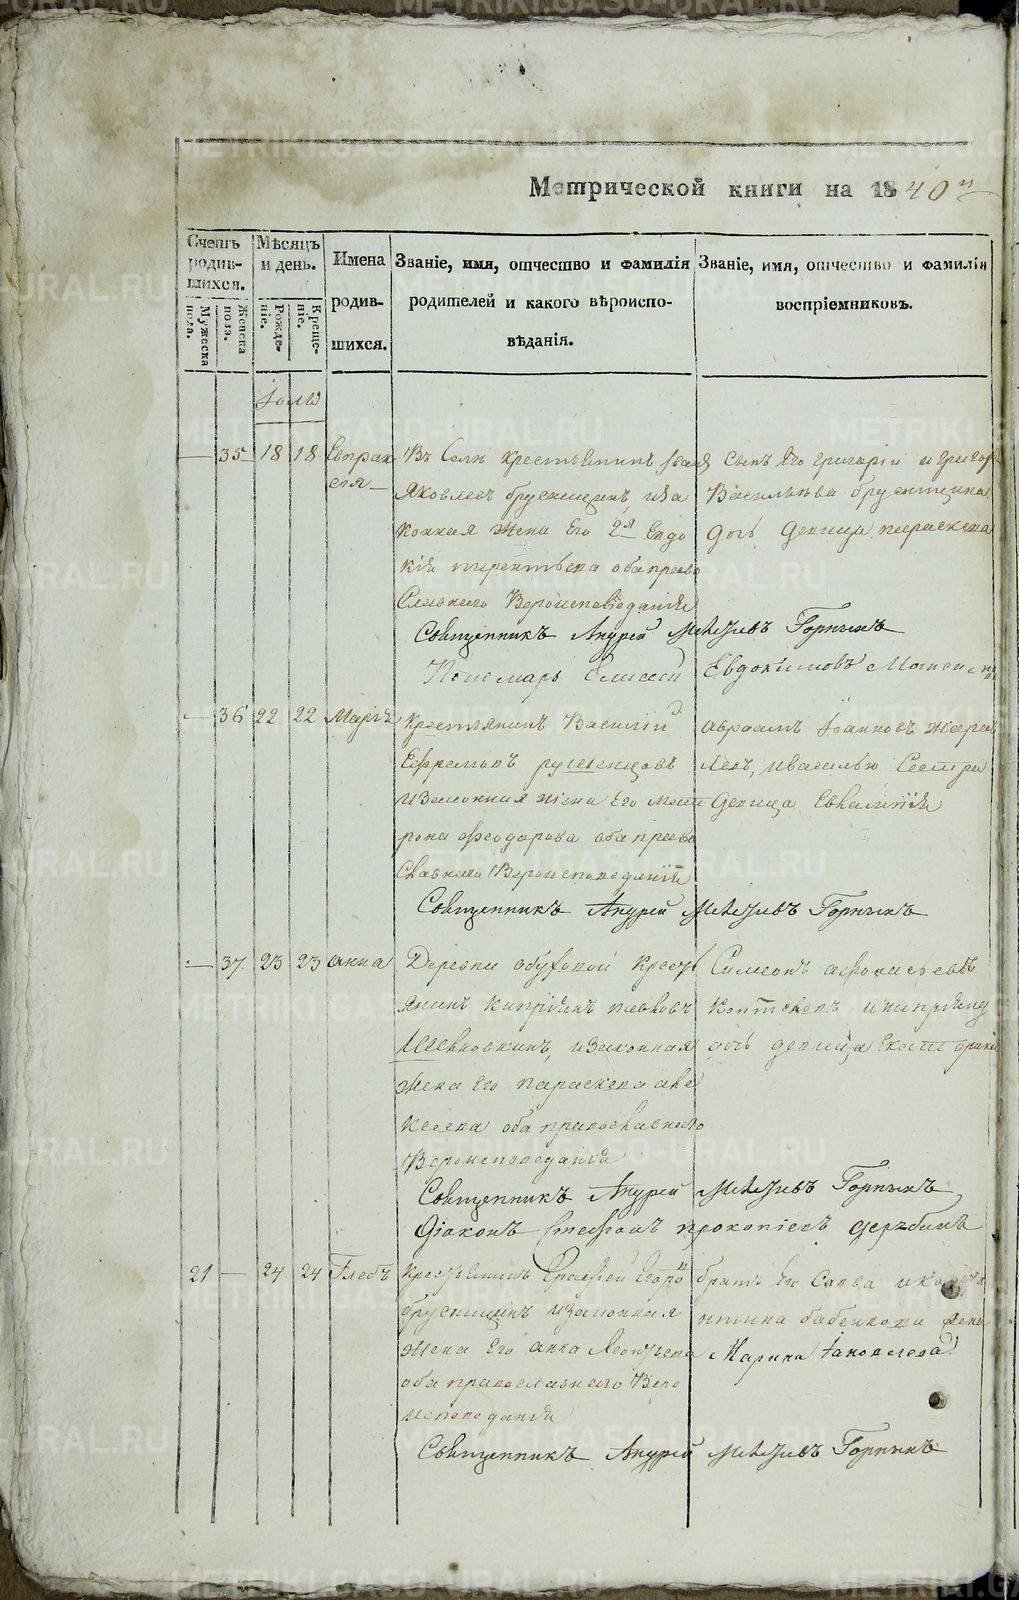 Метрической книги на 1840й
Счетъ родившихся.
Мужеска пола.
Женска пола.
Мѣсяцъ и день.
Рожденіе.
Крещеніе.
Имена родившихся.
Званіе, имя, отчество и фамилія родителей и какого вѣроисповѣданія.
Званіе, имя, отчество и фамилія воспріемниковъ.
Іюль
— 35 18 18 Евпрак
сія
Въ Селѣ крестьянинъ
Яковлевъ брусницинъ, иза
конная жена Его 2я Евдо
кія терентьева оба право
Славнаго Вероисповѣданія
Сынъ Его григорій и григорья
Васильева брусницина
дочь девица параскева
Священникъ Андрей Горныхъ
Пономарь Елисей Евдокимовъ
— 36 22 22 Марія
крестьянинъ Василій
Ефремовъ
изаконная жена Его мат
рона феодорова оба право
Славнаго Вероисповеданія
авраамъ Іоанновъ журав
левъ, и василья Сестра
девица Евлампія
Священникъ Андрей Горныхъ
— 37 23 23 анна
Деревни обуховой крест
янинъ кипріянъ павловъ
изаконная
жена Его параскева але
ксеева оба православнаго
Вероисповеданія
Симеонъ
и кипріяна
дочь девица Екатерина
Священникъ Андрей Горныхъ
Діаконъ Стефанъ прокопіевъ
21 — 24 24 Глебъ
крестьянинъ
брусницинъ изаконная
жена Его анна Леонтьева
оба православнаго Веро
исповеданія
братъ Ея Савва и
жена
Марина Іаковлева
Священникъ Андрей Горныхъ
METRIKI.GASO-URAL.RU